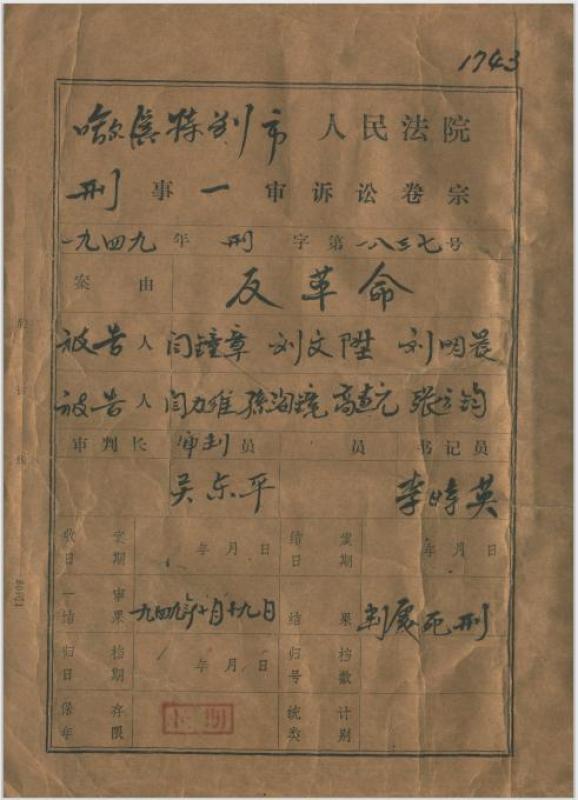 1743
哈尔滨特别市 人民法院
刑 事 一 审诉讼卷宗
一九四九 年 刑 字第 一八三七 号
案由 反革命
被告人 闫鐘章 刘文陞 刘明晨
被告人 闫力维 孫 高 张立钧
审判长 审判员 员 书记员
吴东平 李時英
收案日期 年 月 日 结案日期 年 月 日
一审结果 一九四九年十月十九日 结果 判处死刑
归档日期 年 月 日 归档号数
保存年限 长期 统计类别